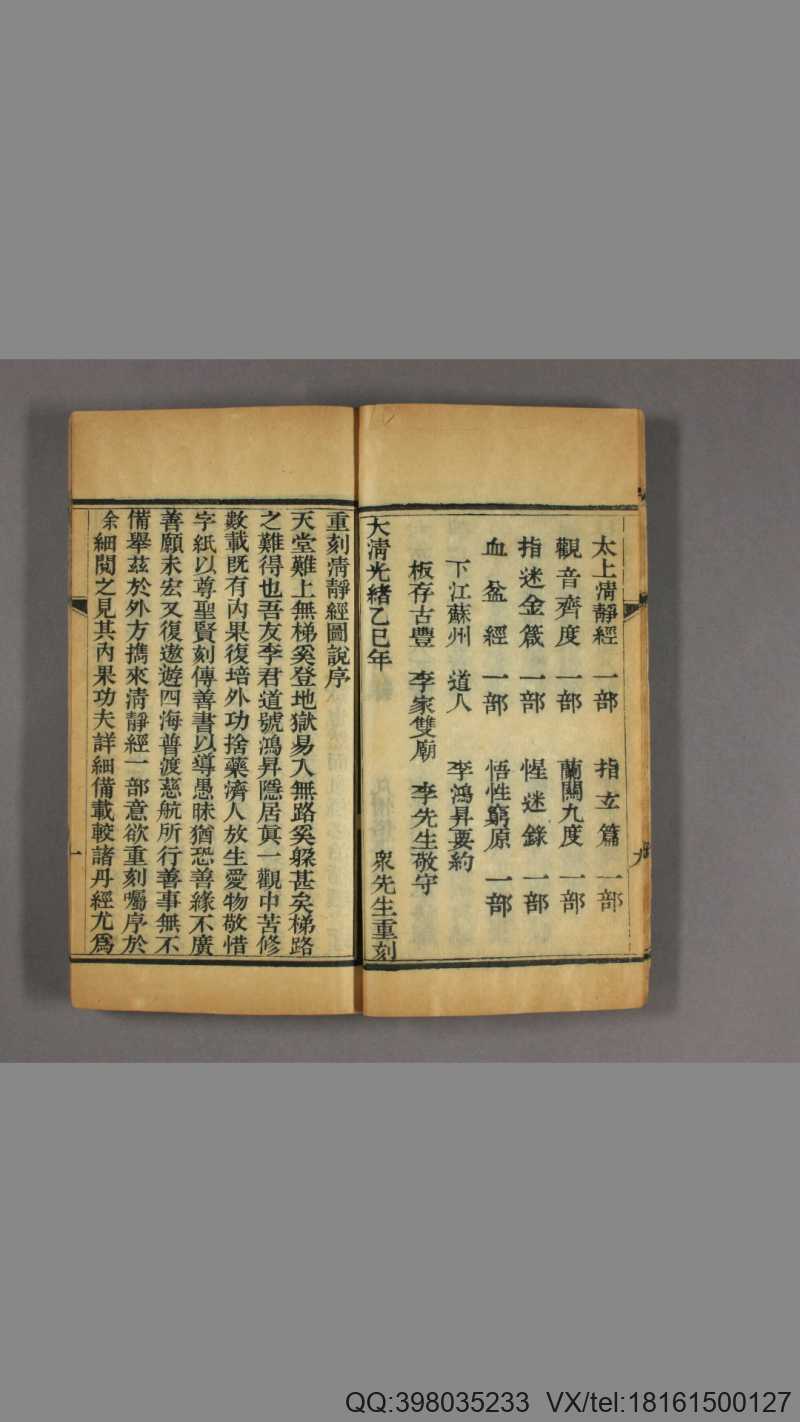 太上清靜經 一部 指玄篇 一部
觀音齊度 一部 蘭關九度 一部
指迷金箴 一部 惺迷錄 一部
血盆經 一部 悟性窮原 一部
下江蘇州 道人 李鴻昇要約
板存古豐 李家雙廟 李先生敬守
大淸光緒乙巳年 衆先生重刻
重刻淸靜經圖說序
天堂難上無梯奚登地獄易入無路奚躱甚矣梯路
之難得也吾友李君道號鴻昇隱居眞一觀中苦修
數載既有內果復培外功捨藥濟人放生愛物敬惜
字紙以尊聖賢刻傳善書以導愚昧猶恐善緣不廣
善願未宏又復遨遊四海普渡慈航所行善事無不
備舉茲於外方擕來淸靜經一部意欲重刻囑序於
余細閱之見其內果功夫詳細備載較諸丹經尤爲
一
QQ:398035233 VX/tel:18161500127